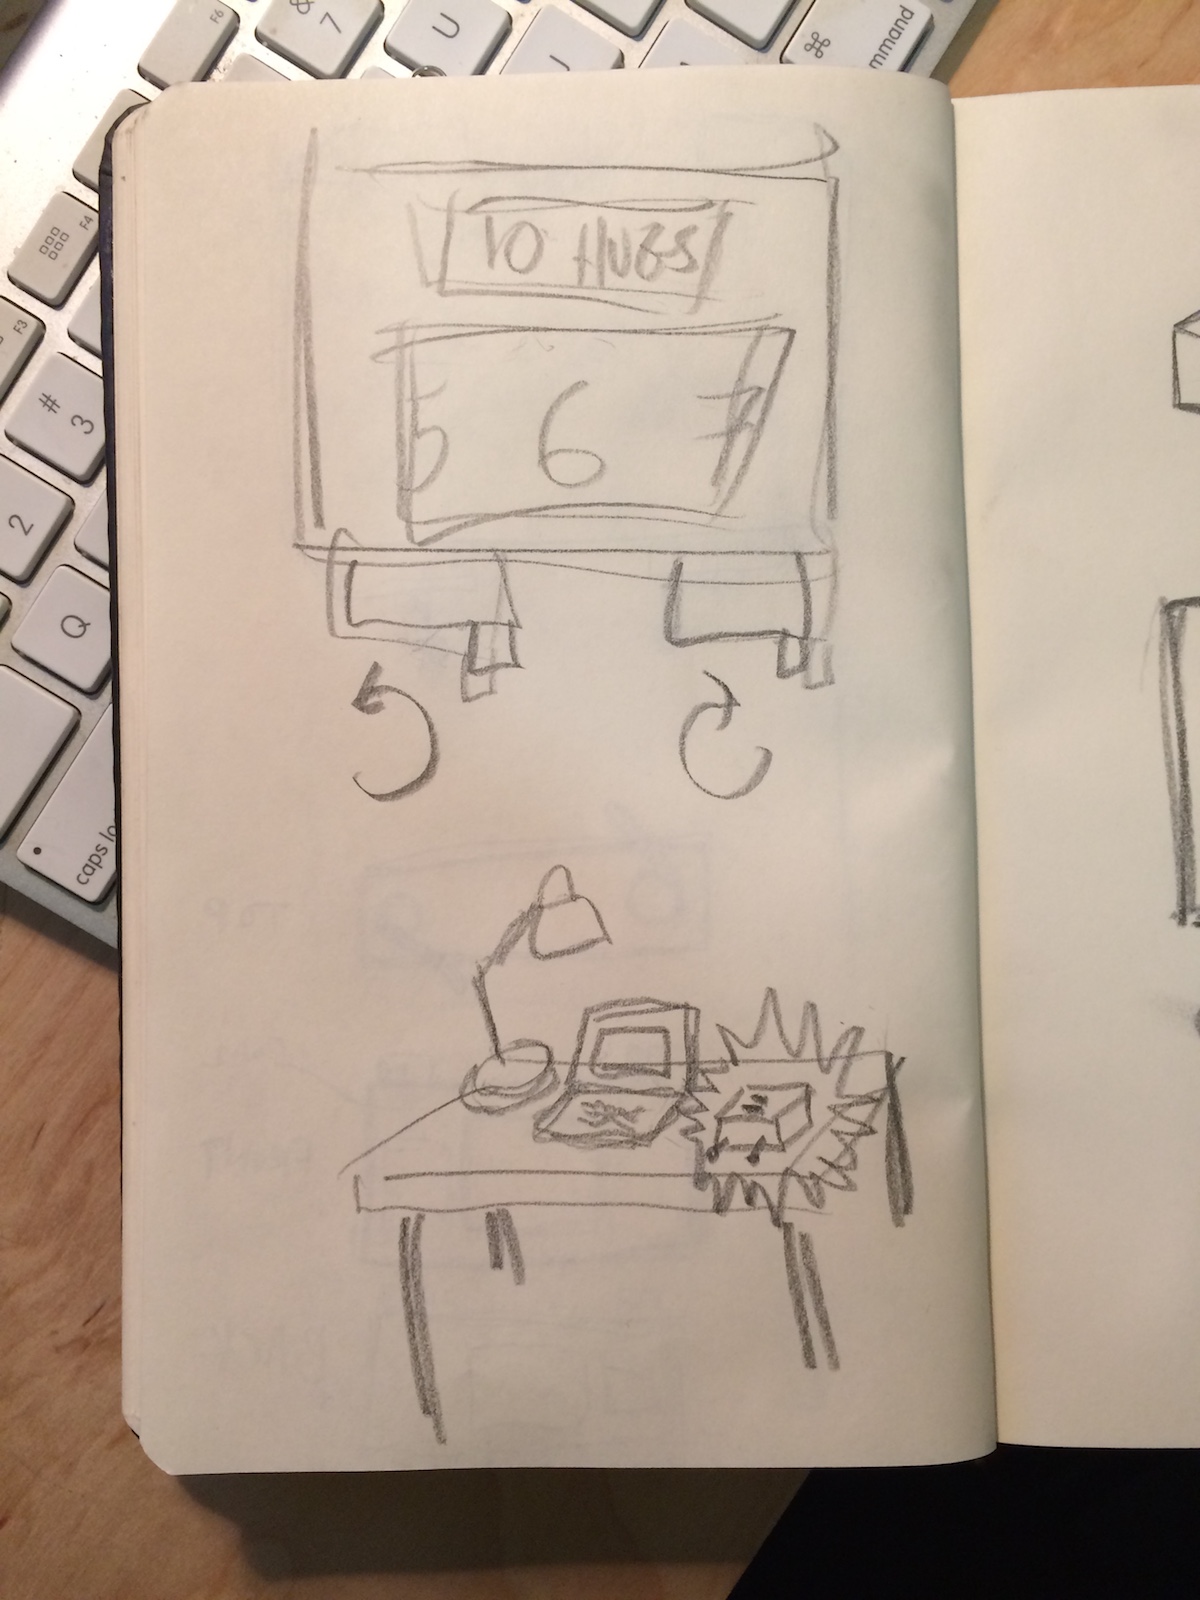 F6
& 7
U
J
⌘
command
F4
F3
# 3
2
Q
caps lo
10 HUGS
5 6 7